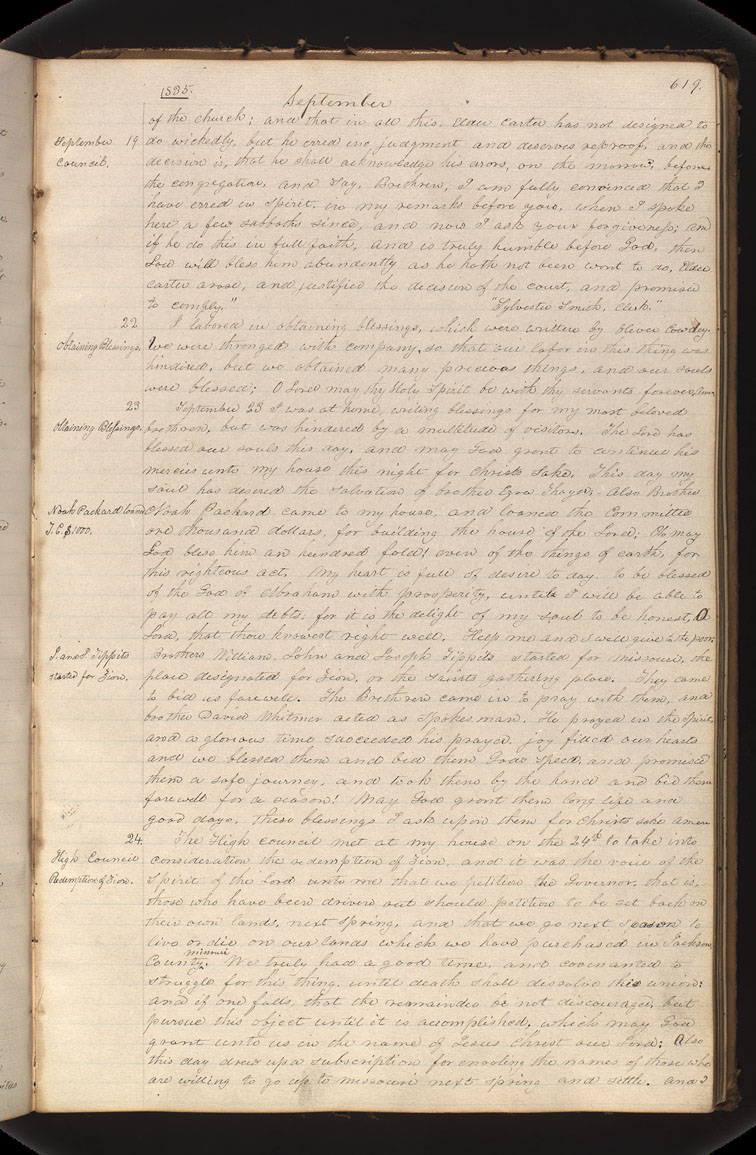 1835.
September
619.
of the church; and that in all this. Elder Carter has not designed to
September 19
Council.
do wickedly, but he erred in judgment and deserves reproof, and the
decision is, that he shall acknowledge his erors, on the morrow, before
the congregation, and say, Brethren, I am fully convinced that I
have erred in spirit, in my remarks before you, when I spoke
here a few sabbaths since, and now I ask your forgiveness; and
if he do this in full faith, and is truly humble before God, then
God will bless him abundantly as he hath not been wont to do, Elder
Carter arose, and justified the decision of the court, and promised
to comply."
"Sylvester Smith, Clerk."
22
I labored in obtaining blessings, which were written by Oliver Cowdery.
Obtaining Blessings.
We were thronged with company, so that our labor in this thing was
hindered, but we obtained many precious things, and our souls
were blessed; O Lord may thy Holy Spirit be with thy servants forever, Amen
23
September 23 I was at home, writing blessings for my most beloved
Obtaining Blessings.
brethren, but was hindered by a multitude of visitors. The Lord has
blessed our souls this day, and may God grant to continue his
mercies unto my house this night for Christs sake. This day my
soul has desired the salvation of brother Ezra Thayer. Also Brother
Noah Packard loaned
T. C. $1000.
Noah Packard came to my house, and loaned the Committee
one thousand dollars, for building the house of the Lord; O may
God bless him an hundred fold! even of the things of earth, for
this righteous act. My heart is full of desire to day, to be blessed
of the God of Abraham with prosperity, until I will be able to
pay all my debts; for it is the delight of my soul to be honest, O
Lord, that thou knowest right well. Help me and I will give to the poor.
Tippits
started for Zion.
Brothers William, John and Joseph Tippits started for Missouri, the
place designated for Zion, or the saints gathering place. They came
to bid us farewell. The Brethren came in to pray with them, and
brother David Whitmer acted as spokesman. He prayed in the spirit
and a glorious time succeeded his prayer, joy filled our hearts
and we blessed them and bid them God speed, and promised
them a safe journey, and took them by the hand and bid them
farewell for a season! May God grant them long life and
good days. These blessings I ask upon them for Christs sake Amen
24.
The High council met at my house on the 24th to take into
High Council
Redemption of Zion.
consideration the redemption of Zion, and it was the voice of the
Spirit of the Lord unto me that we petition the Governor, that is,
those who have been driven out should petition to be set back on
their own lands, next spring, and that we go next season to
live or die on our lands which we have purchased in Jackson
Missouri
County. We truly had a good time, and covenanted to
struggle for this thing, until death shall dissolve this union;
and if one falls, that the remainder be not discouraged, but
pursue this object until it is acomplished, which may God
grant unto us in the name of Jesus Christ our Lord; Also
this day drew up a subscription for enroling the names of those who
are willing to go up to Missouri next spring and settle. and I